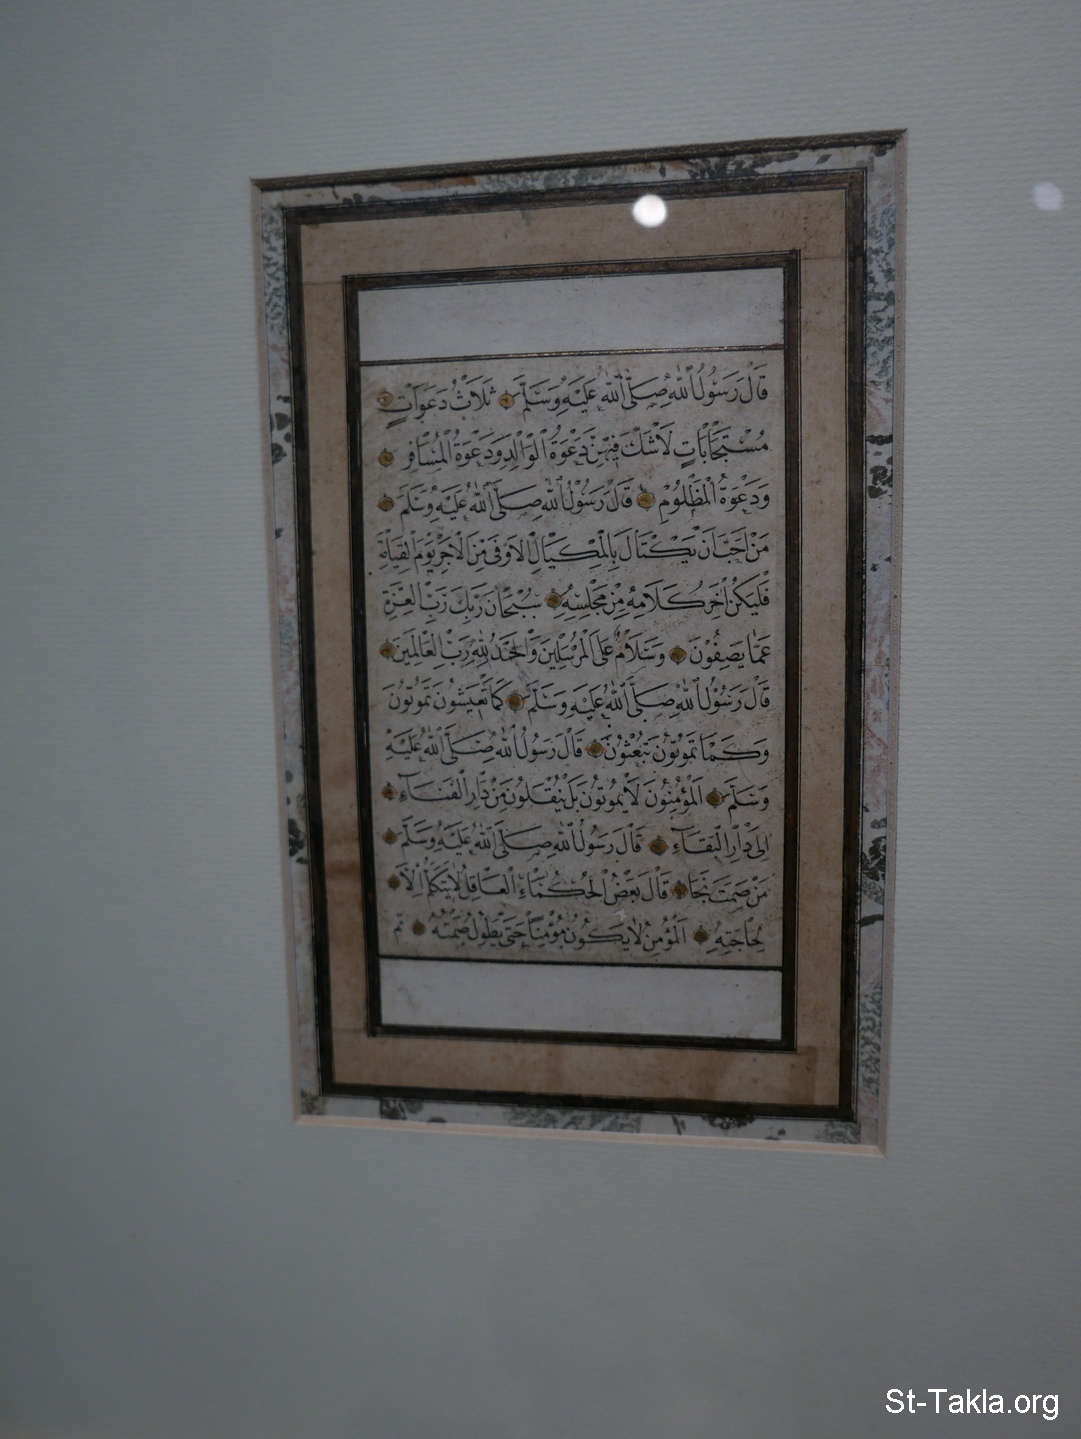 قَالَ رَسُولُ اللهِ صَلَّى اللهُ عَلَيْهِ وَسَلَّمَ ثَلَاثُ دَعَوَاتٍ
مُسْتَجَابَاتٍ لَاشَكَّ فِيهِنَّ دَعْوَةُ الْوَالِدِ وَدَعْوَةُ الْمُسَافِرِ
وَدَعْوَةُ الْمَظْلُومِ قَالَ رَسُولُ اللهِ صَلَّى اللهُ عَلَيْهِ وَسَلَّمَ
مَنْ اَحَبَّ اَنْ يَكْتَالَ بِالْمِكْيَالِ الْاَوْفَى مِنَ الْاَجْرِ يَوْمَ الْقِيَامَةِ
فَلْيَكُنْ اٰخَرُ كَلَامِهِ مِنْ مَجْلِسِهِ سُبْحَانَ رَبِّكَ رَبِّ الْعِزَّةِ
عَمَّا يَصِفُونَ وَسَلَامٌ عَلَى الْمُرْسَلِينَ وَالْحَمْدُ لِلّٰهِ رَبِّ الْعَالَمِينَ
قَالَ رَسُولُ اللهِ صَلَّى اللهُ عَلَيْهِ وَسَلَّمَ كَمَا تَعِيشُونَ تَمُوتُونَ
وَكَمَا تَمُوتُونَ تُبْعَثُونَ قَالَ رَسُولُ اللهِ صَلَّى اللهُ عَلَيْهِ
وَسَلَّمَ اَلْمُؤْمِنُونَ لَايَمُوتُونَ بَلْ يُنْقَلُونَ مِنْ دَارِ الْفَنَاءِ
اِلَى دَارِ الْبَقَاءِ قَالَ رَسُولُ اللهِ صَلَّى اللهُ عَلَيْهِ وَسَلَّمَ
مَنْ صَمَتَ نَجَا قَالَ بَعْضُ الْحُكَمَاءِ الْعَاقِلُ لَايَتَكَلَّمُ اِلَّا
لِحَاجَتِهِ اَلْمُؤْمِنُ لَايَكُونُ مُؤْمِنًا حَتَّى يَطُولَ صَمْتُهُ تم
St-Takla.org